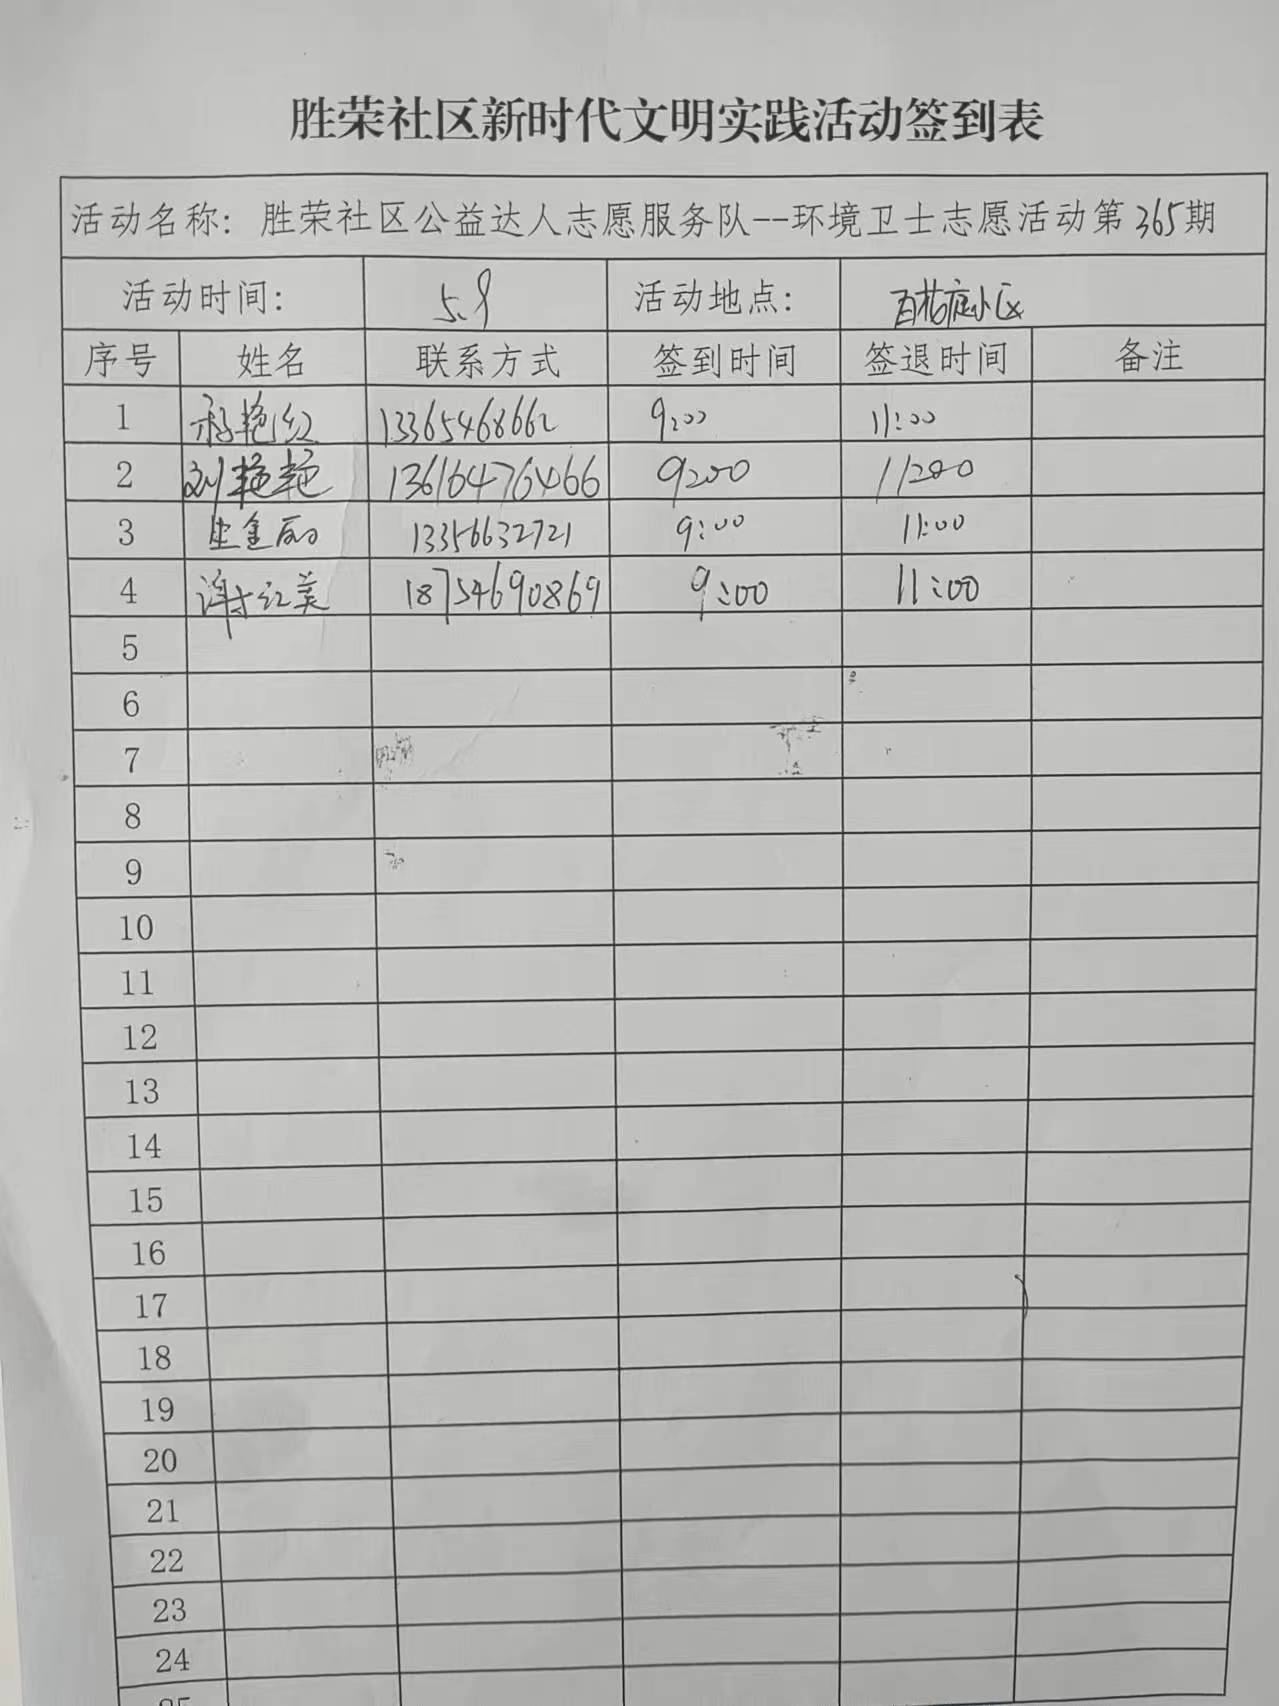 胜荣社区新时代文明实践活动签到表
活动名称：胜荣社区公益达人志愿服务队--环境卫士志愿活动第365期
活动时间： 5.9 活动地点： 百花庭小区
序号 姓名 联系方式 签到时间 签退时间 备注
1 艳红 13365468662 9:00 11:00
2 刘艳艳 13616476466 9:00 11:00
3 金丽 13356632721 9:00 11:00
4 谢红英 18754690869 9:00 11:00
5
6
7
8
9
10
11
12
13
14
15
16
17
18
19
20
21
22
23
24
25